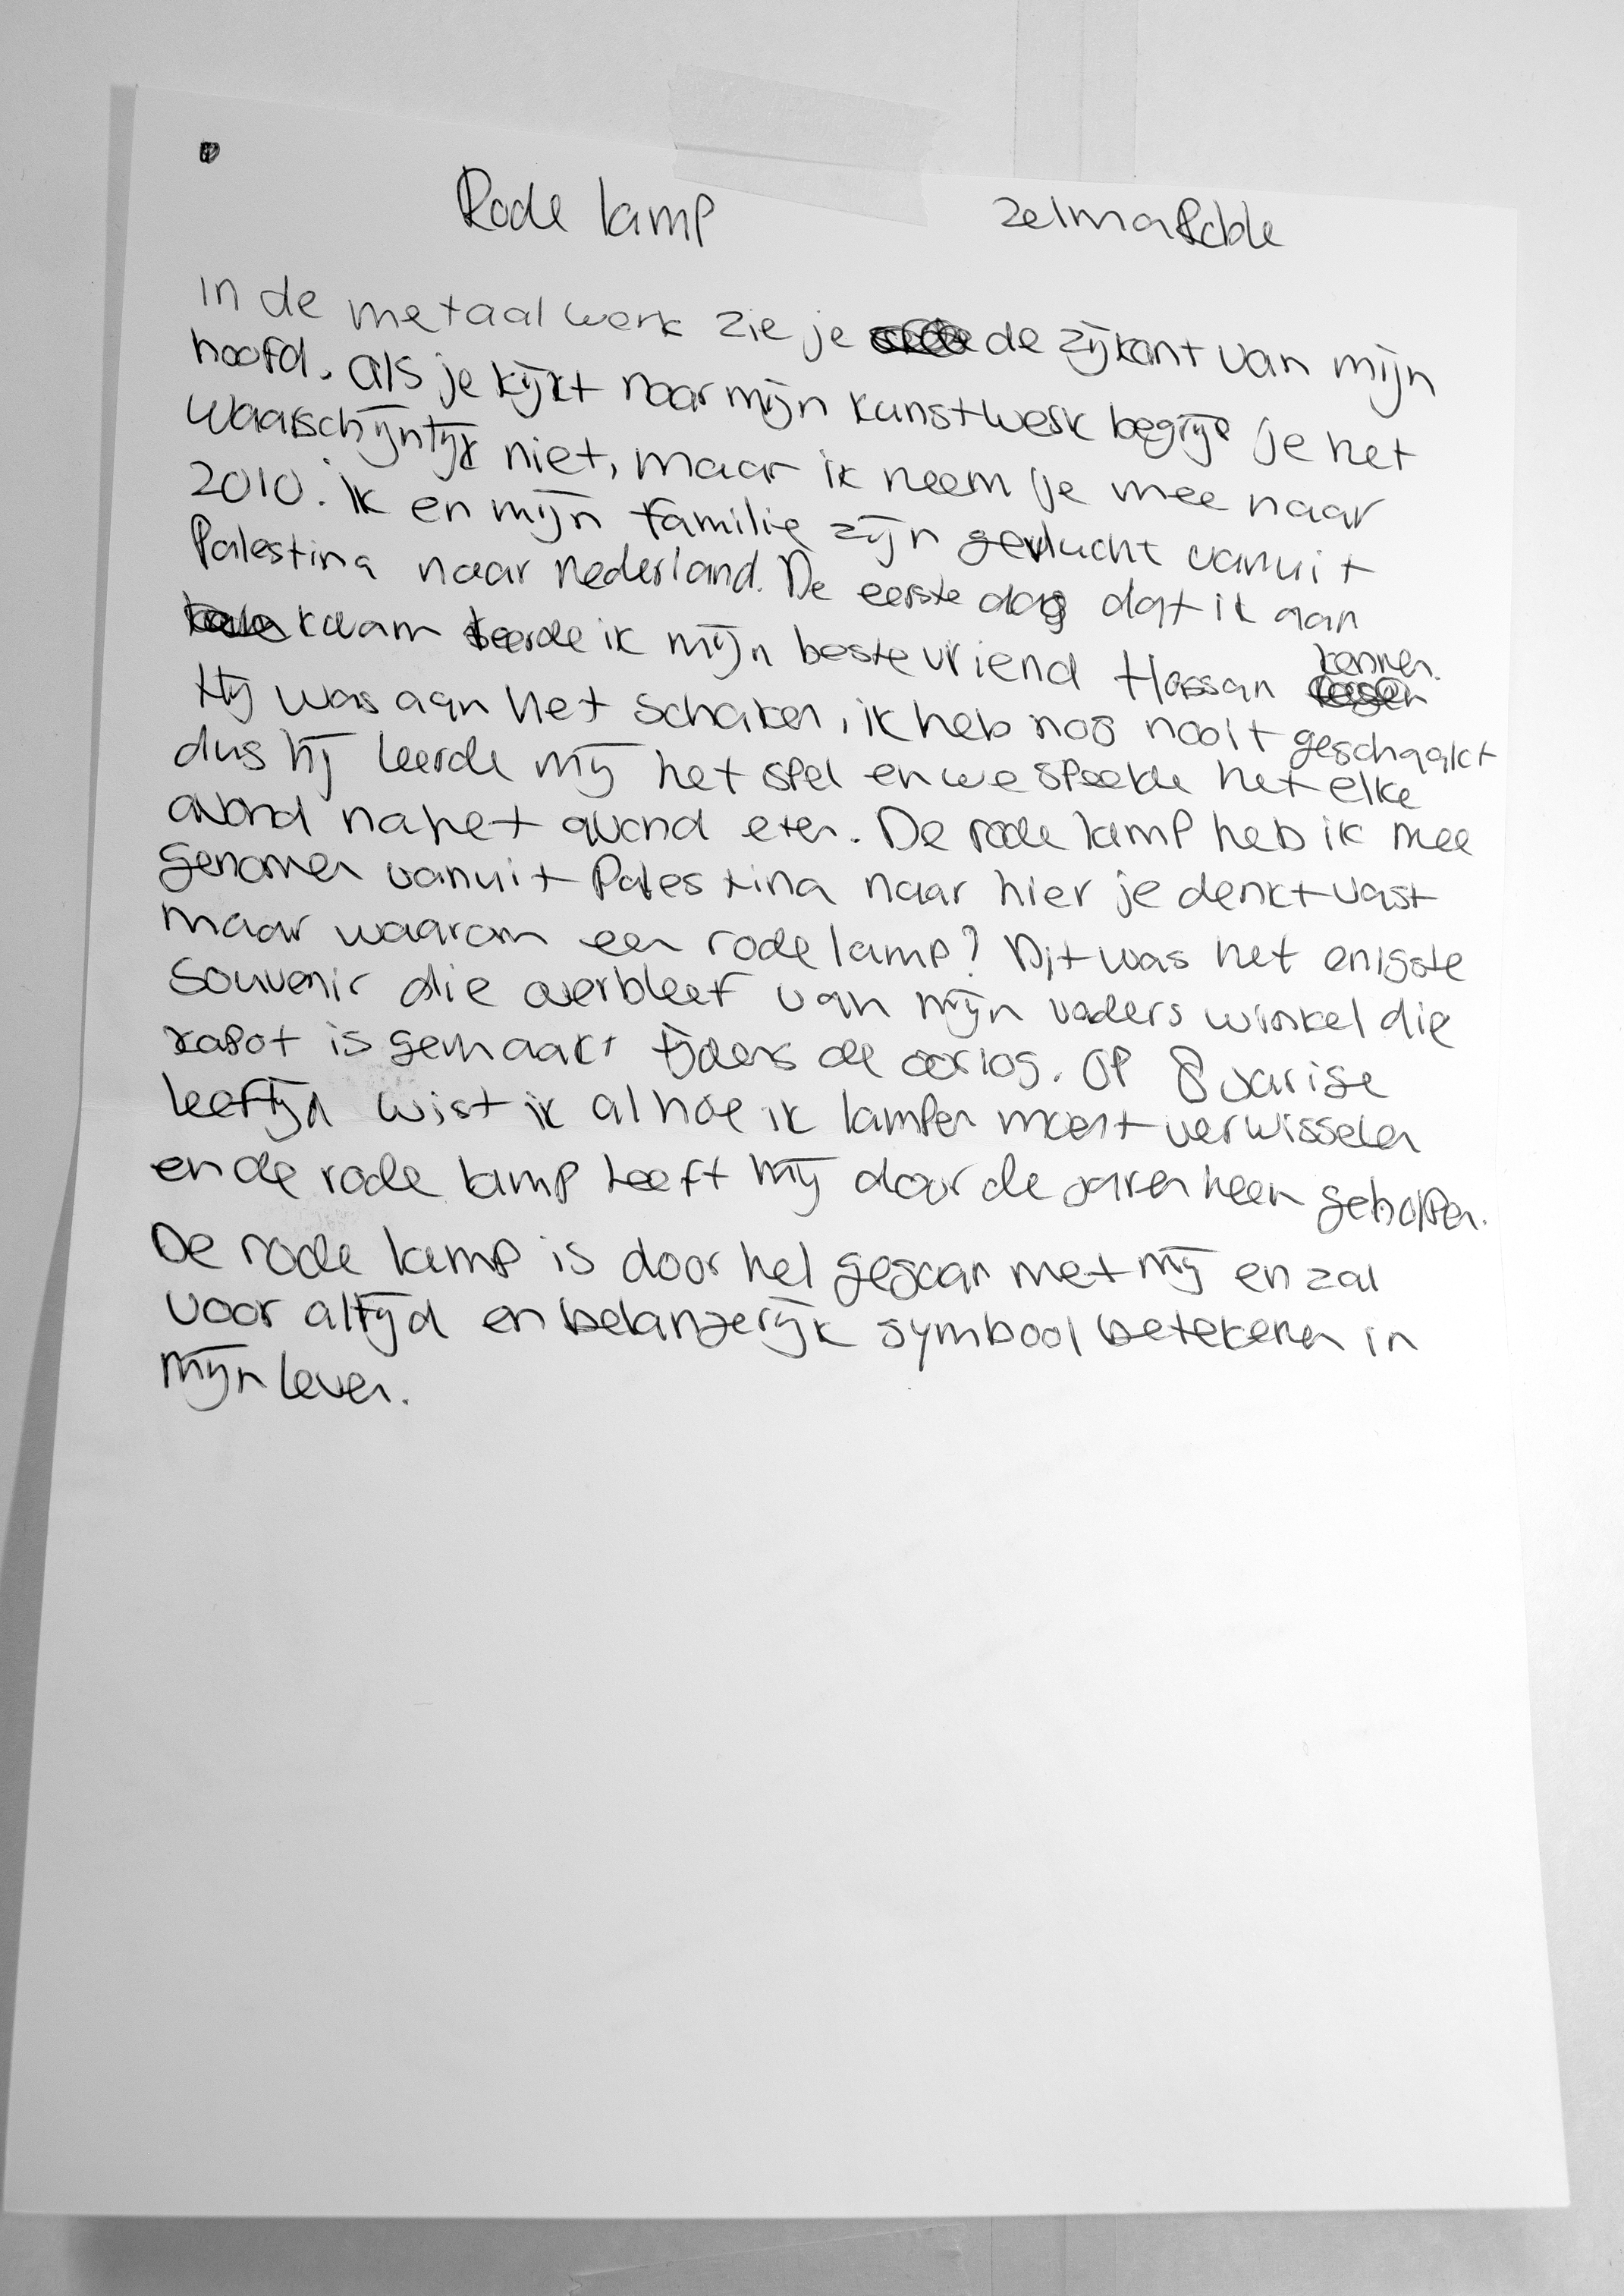 Rode lamp
In de metaal werk zie je de zijkant van mijn
hoofd. als je kijkt naar mijn kunstwerk begrijp je het
waarschijntijk niet, maar ik neem je mee naar
2010. ik en mijn familie zijn gevlucht vanuit
Palestina naar nederland. De eerste dag dat ik aan
kwam leerde ik mijn beste vriend Hassan kennen.
Hij was aan het schaken, ik heb nog nooit geschaakt
dus hij leerde mij het spel en we speelde het elke
avond na het avond eten. De rode lamp heb ik mee
genomen vanuit Palestina naar hier je denkt vast
maar waarom een rode lamp? Dit was het enigste
Souvenir die overbleef van mijn vaders winkel die
kapot is gemaakt tijdens de oorlog. OP 8 jarige
leeftijd wist ik al hoe ik lampen moest verwisselen
en de rode lamp heeft mij door de jaren heen geholpen.
De rode lamp is door hel gegaan met mij en zal
voor altijd en belangerijk symbool betekenen in
mijn leven.